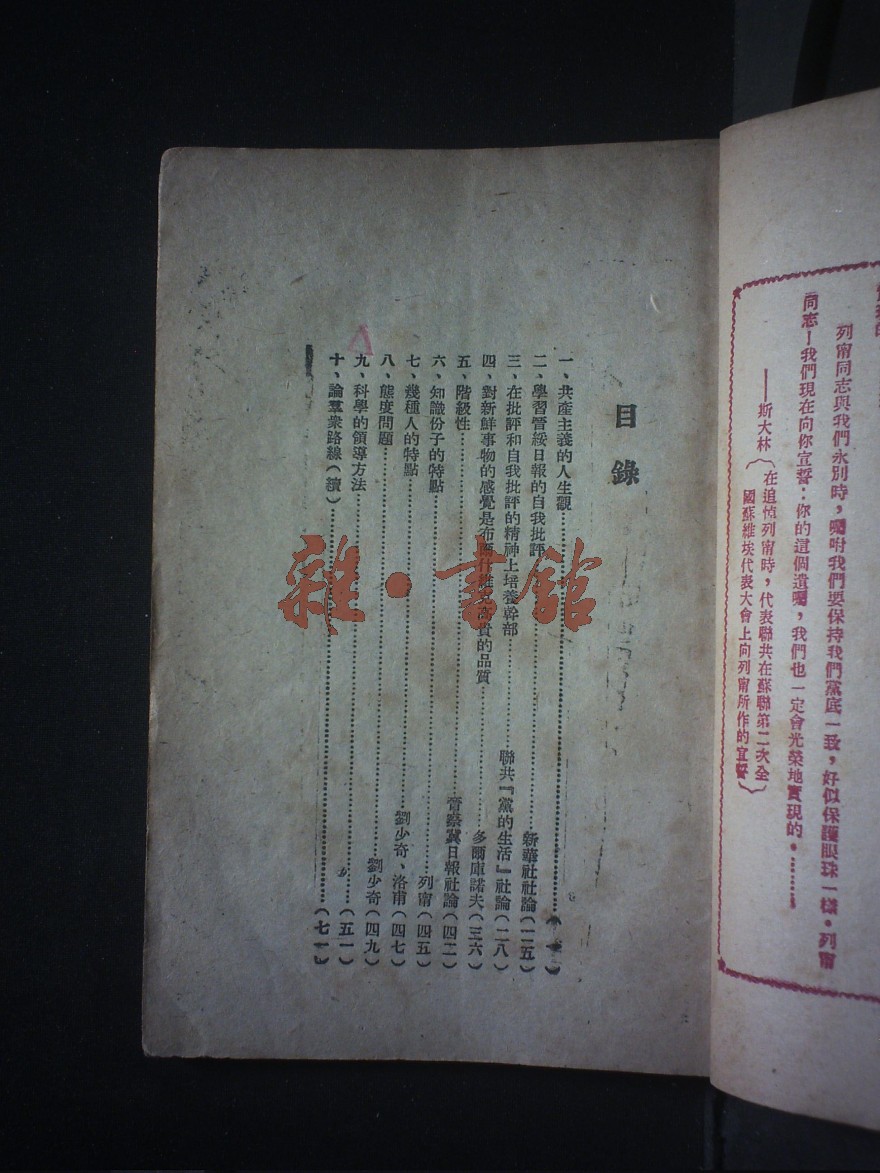 列甯同志與我們永別時，囑咐我們要保持我們黨底一致，好似保護眼珠一樣。列甯
同志！我們現在向你宣誓：你的這個遺囑，我們也一定會光榮地實現的。………
——斯大林（在追悼列甯時，代表聯共在蘇聯第二次全
國蘇維埃代表大會上向列甯所作的宣誓）
目錄
一、共產主義的人生觀……
二、學習晉綏日報的自我批評……新華社社論（二五）
三、在批評和自我批評的精神上培養幹部……聯共『黨的生活』社論（二八）
四、對新鮮事物的感覺是布爾什維克高貴的品質……多爾庫諾夫（三六）
五、階級性……晉察冀日報社論（四二）
六、知識份子的特點……列甯（四五）
七、幾種人的特點……劉少奇、洛甫（四七）
八、態度問題……劉少奇（四九）
九、科學的領導方法……（五一）
十、論羣衆路線（續）……（七一）
雜·書館